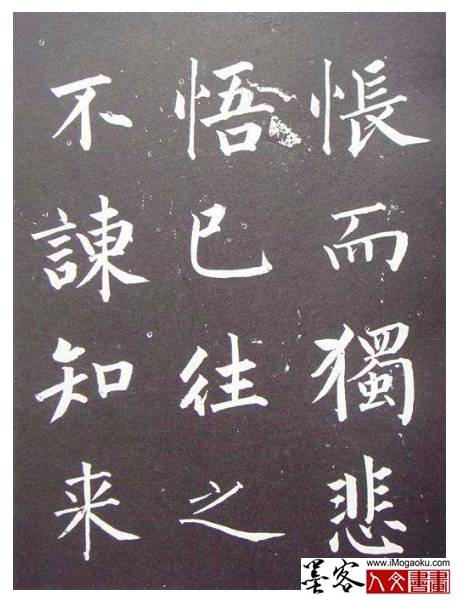 悵而獨悲
悟已往之
不諫知来
墨客
www.iMogaoku.com
人文書畫